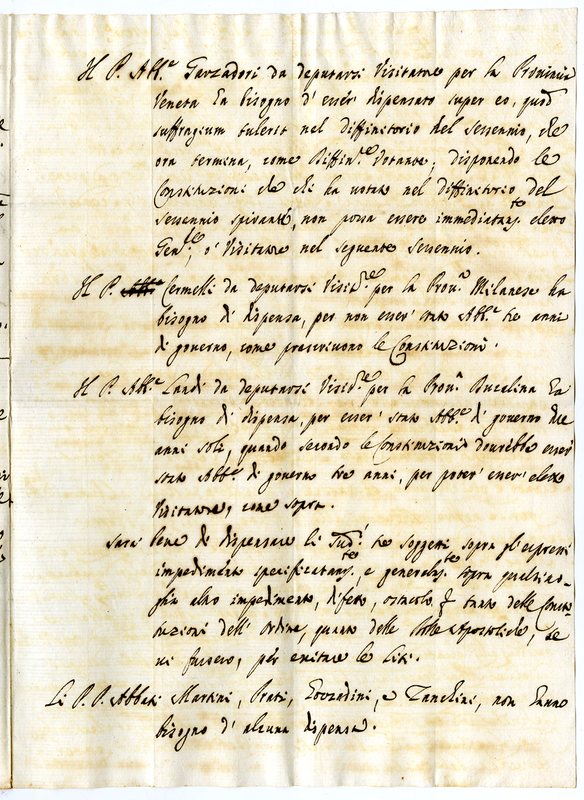 Il P. Abb.e Garzadori da deputarsi Visitatore per la Provincia
Veneta ha bisogno d' esser dispensato super eo, quod
suffragium tulerit nel diffinitorio del sessennio, che
ora termina, come Diffin.re Votante; disponendo le
Constituzioni che chi ha votato nel diffinitorio del
sessennio spirante, non possa essere immediatam.te eletto
Gen.le, o' Visitatore nel seguente sessennio.
Il P. Cermelli da deputarsi Visit.re per la Prov.a Milanese ha
bisogno di dispensa, per non esser' stato Abb.e tre anni
di governo, come prescrivono le Constituzioni.
Il P. Abb.e Landi da deputarsi Visit.re per la Prov.a Ducalina ha
bisogno di dispensa, per esser' stato Abb.e di governo due
anni soli, quando secondo le Constituzioni dovrebbe esser
stato Abb.e di governo tre anni, per poter' esser' eletto
Visitatore, come sopra.
Sarà bene di dispensare li sud.i tre soggetti sopra gl'espressi
impedimenti specificatam.te, e generalm.te sopra qualsivo-
glia altro impedimento, difeto, ostacolo, tanto delle Consti-
tuzioni dell' Ordine, quanto delle Bolle Apostoliche, se
vi fussero, per evitare le liti.
Li P.P. Abbati Martini, Prati, Zanchini, non hanno
bisogno d' alcuna dispensa.